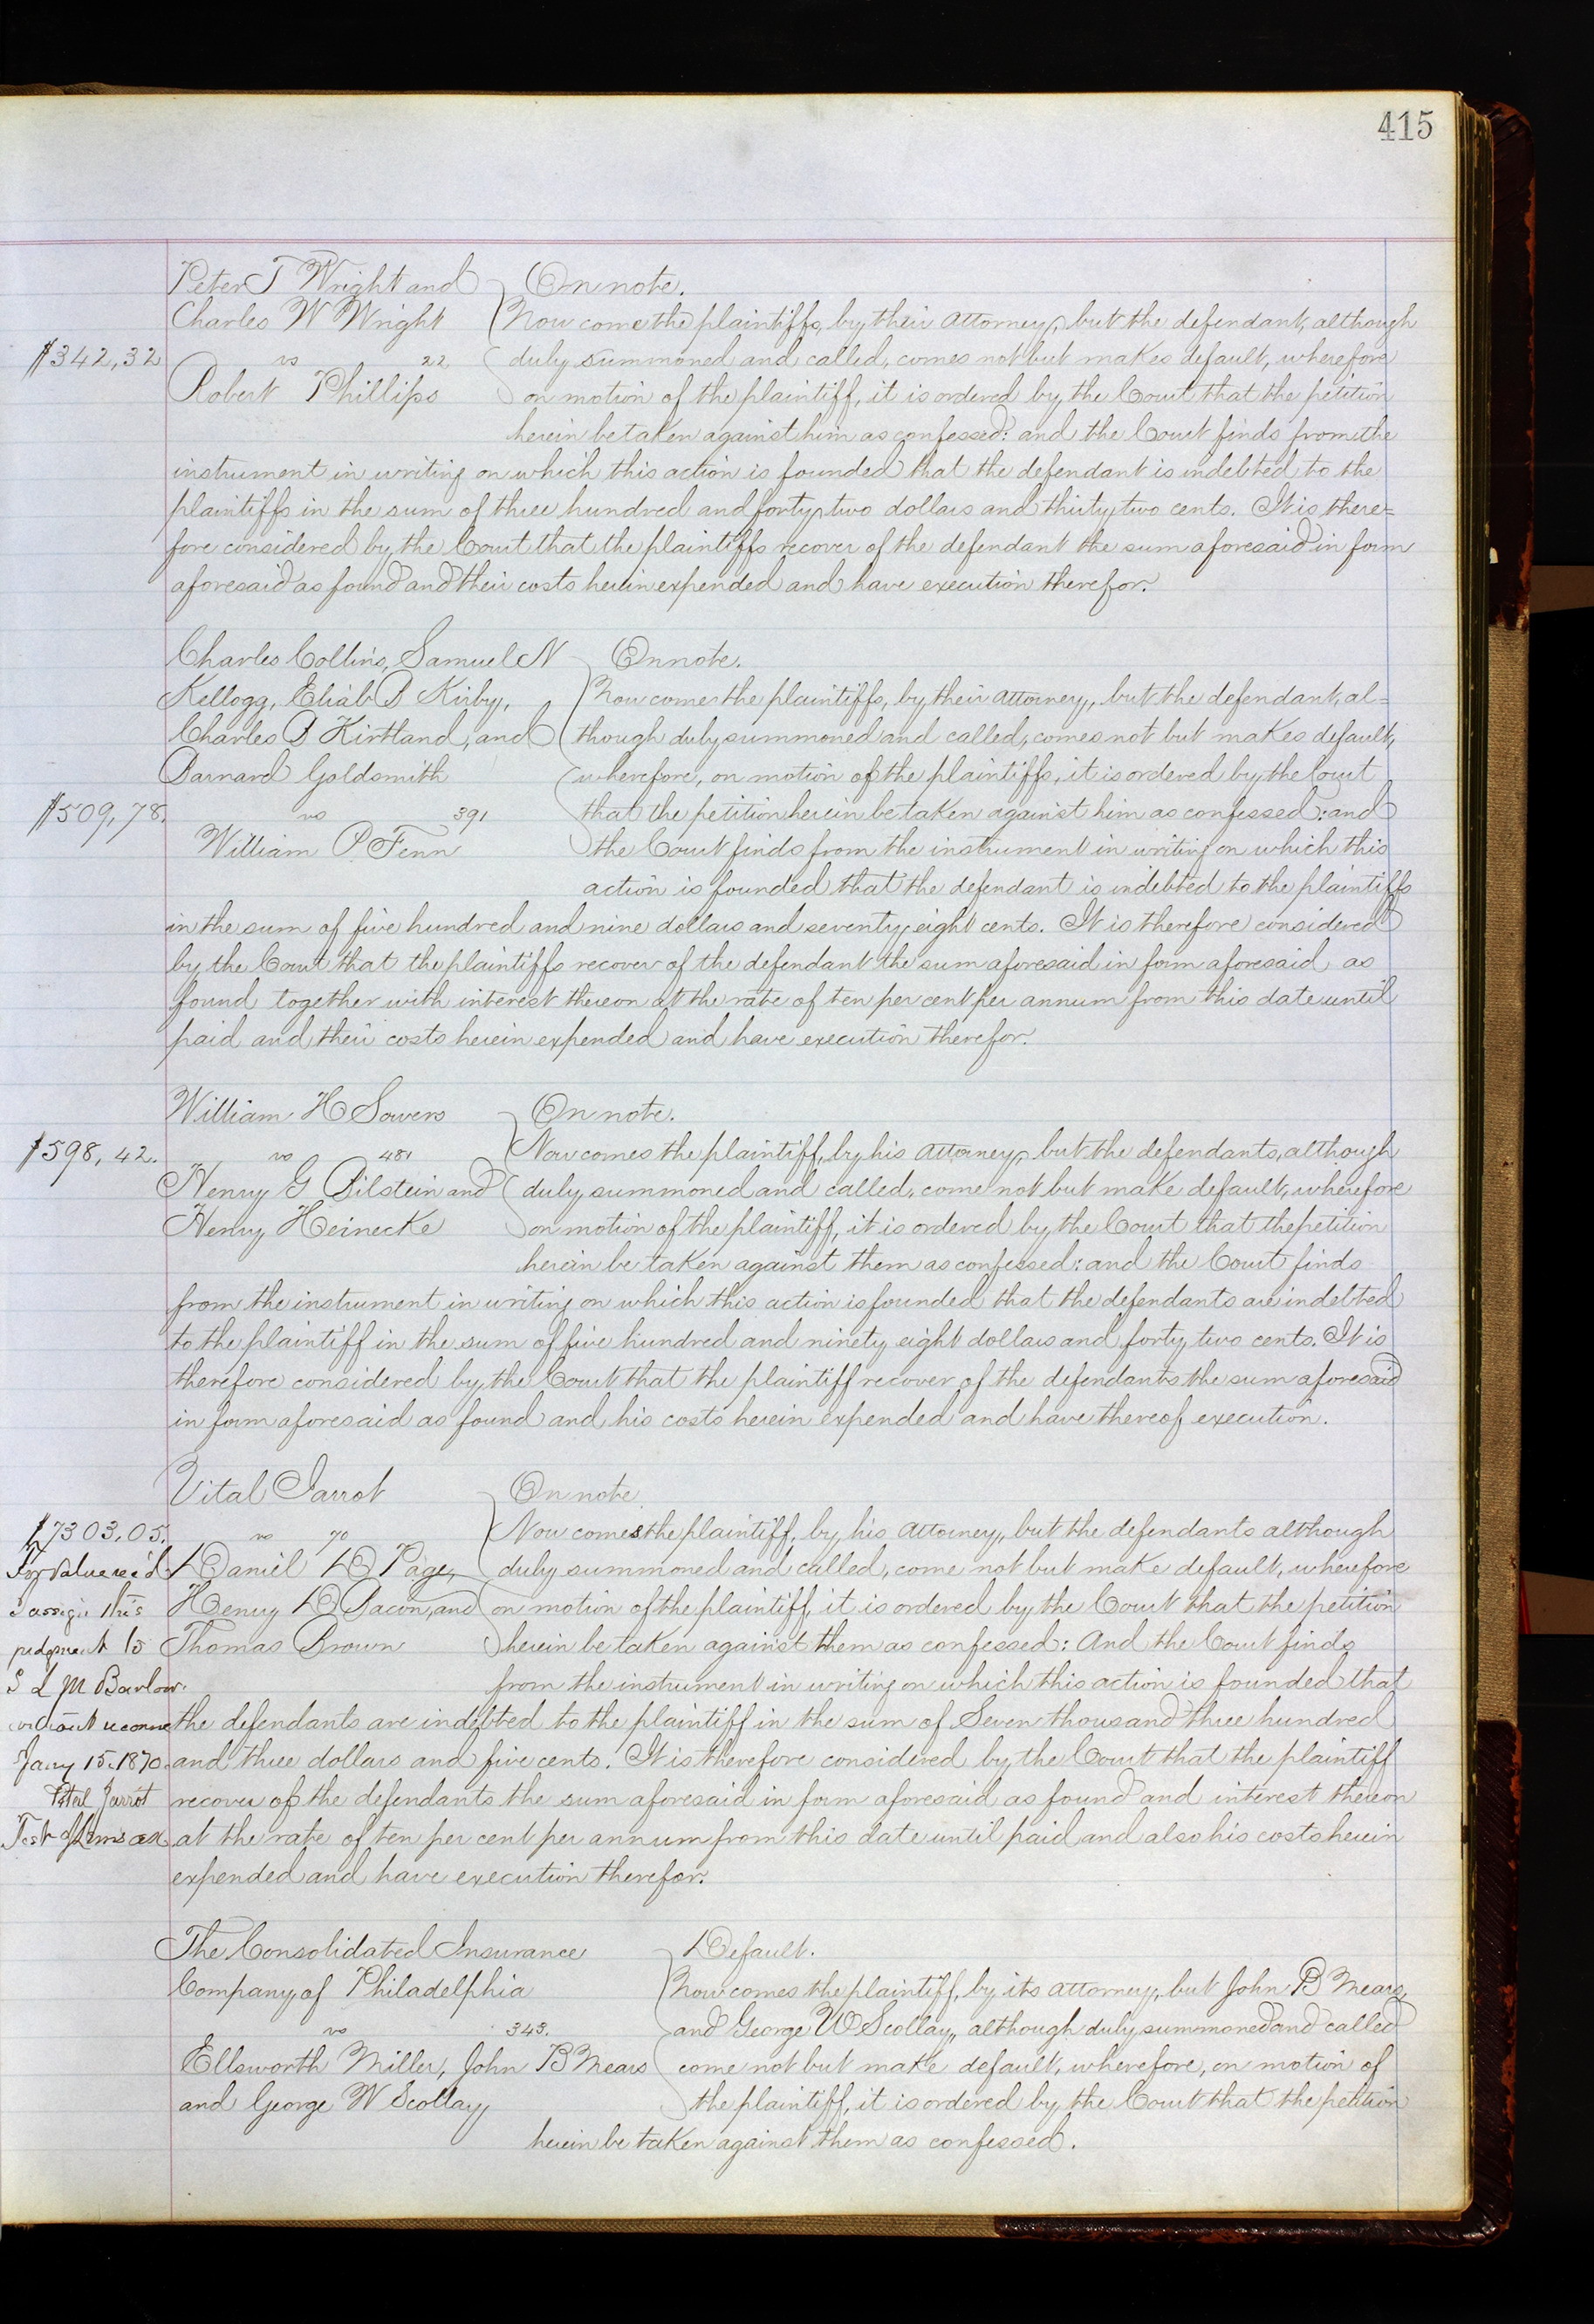 415
Peter T Wright and
Charles W Wright
vs 22
Robert Phillips
$342,32
On note.
Now come the plaintiffs, by their Attorney, but the defendant, although
duly summoned and called, comes not but makes default, wherefore
on motion of the plaintiff, it is ordered by the Court that the petition
herein be taken against him as confessed: and the Court finds from the
instrument in writing on which this action is founded that the defendant is indebted to the
plaintiffs in the sum of three hundred and forty two dollars and thirty two cents. It is there=
fore considered by the Court that the plaintiffs recover of the defendant the sum aforesaid in form
aforesaid as found and their costs herein expended and have execution therefor.
Charles Collins, Samuel N
Kellogg, Eliab B Kirby,
Charles B Kirtland, and
Barnard Goldsmith
vs 391
William P Fenn
$509,78.
On note.
Now comes the plaintiffs, by their Attorney, but the defendant, al=
though duly summoned and called, comes not but makes default,
wherefore, on motion of the plaintiffs, it is ordered by the Court
that the petition herein be taken against him as confessed: and
the Court finds from the instrument in writing on which this
action is founded that the defendant is indebted to the plaintiffs
in the sum of five hundred and nine dollars and seventy eight cents. It is therefore considered
by the Court that the plaintiffs recover of the defendant the sum aforesaid in form aforesaid as
found together with interest thereon at the rate of ten per cent per annum from this date until
paid and their costs herein expended and have execution therefor.
William H Sowers
vs 481
Henry G Bilstein and
Henry Heinecke
$598,42.
On note.
Now comes the plaintiff, by his Attorney, but the defendants, although
duly summoned and called, come not but make default, wherefore
on motion of the plaintiff, it is ordered by the Court that the petition
herein be taken against them as confessed: and the Court finds
from the instrument in writing on which this action is founded that the defendants are indebted
to the plaintiff in the sum of five hundred and ninety eight dollars and forty two cents. It is
therefore considered by the Court that the plaintiff recover of the defendants the sum aforesaid
in form aforesaid as found and his costs herein expended and have thereof execution.
Vital Jarrot
vs 70
Daniel D Page,
Henry D Bacon, and
Thomas Brown
$7303.05.
For value rec'd
I assign this
judgment to
S L M Barlow.
without recourse
Jany 15. 1870.
Vital Jarrot
Test
On note
Now comes the plaintiff, by his Attorney, but the defendants although
duly summoned and called, come not but make default, wherefore
on motion of the plaintiff, it is ordered by the Court that the petition
herein be taken against them as confessed: And the Court finds
from the instrument in writing on which this action is founded that
the defendants are indebted to the plaintiff in the sum of Seven thousand three hundred
and three dollars and five cents. It is therefore considered by the Court that the plaintiff
recover of the defendants the sum aforesaid in form aforesaid as found and interest thereon
at the rate of ten per cent per annum from this date until paid and also his costs herein
expended and have execution therefor.
The Consolidated Insurance
Company of Philadelphia
vs 343.
Ellsworth Miller, John B Mears
and George W Scollay
Default.
Now comes the plaintiff, by its Attorney, but John B Mears,
and George W Scollay, although duly summoned and called
come not but make default, wherefore, on motion of
the plaintiff, it is ordered by the Court that the petition
herein be taken against them as confessed.